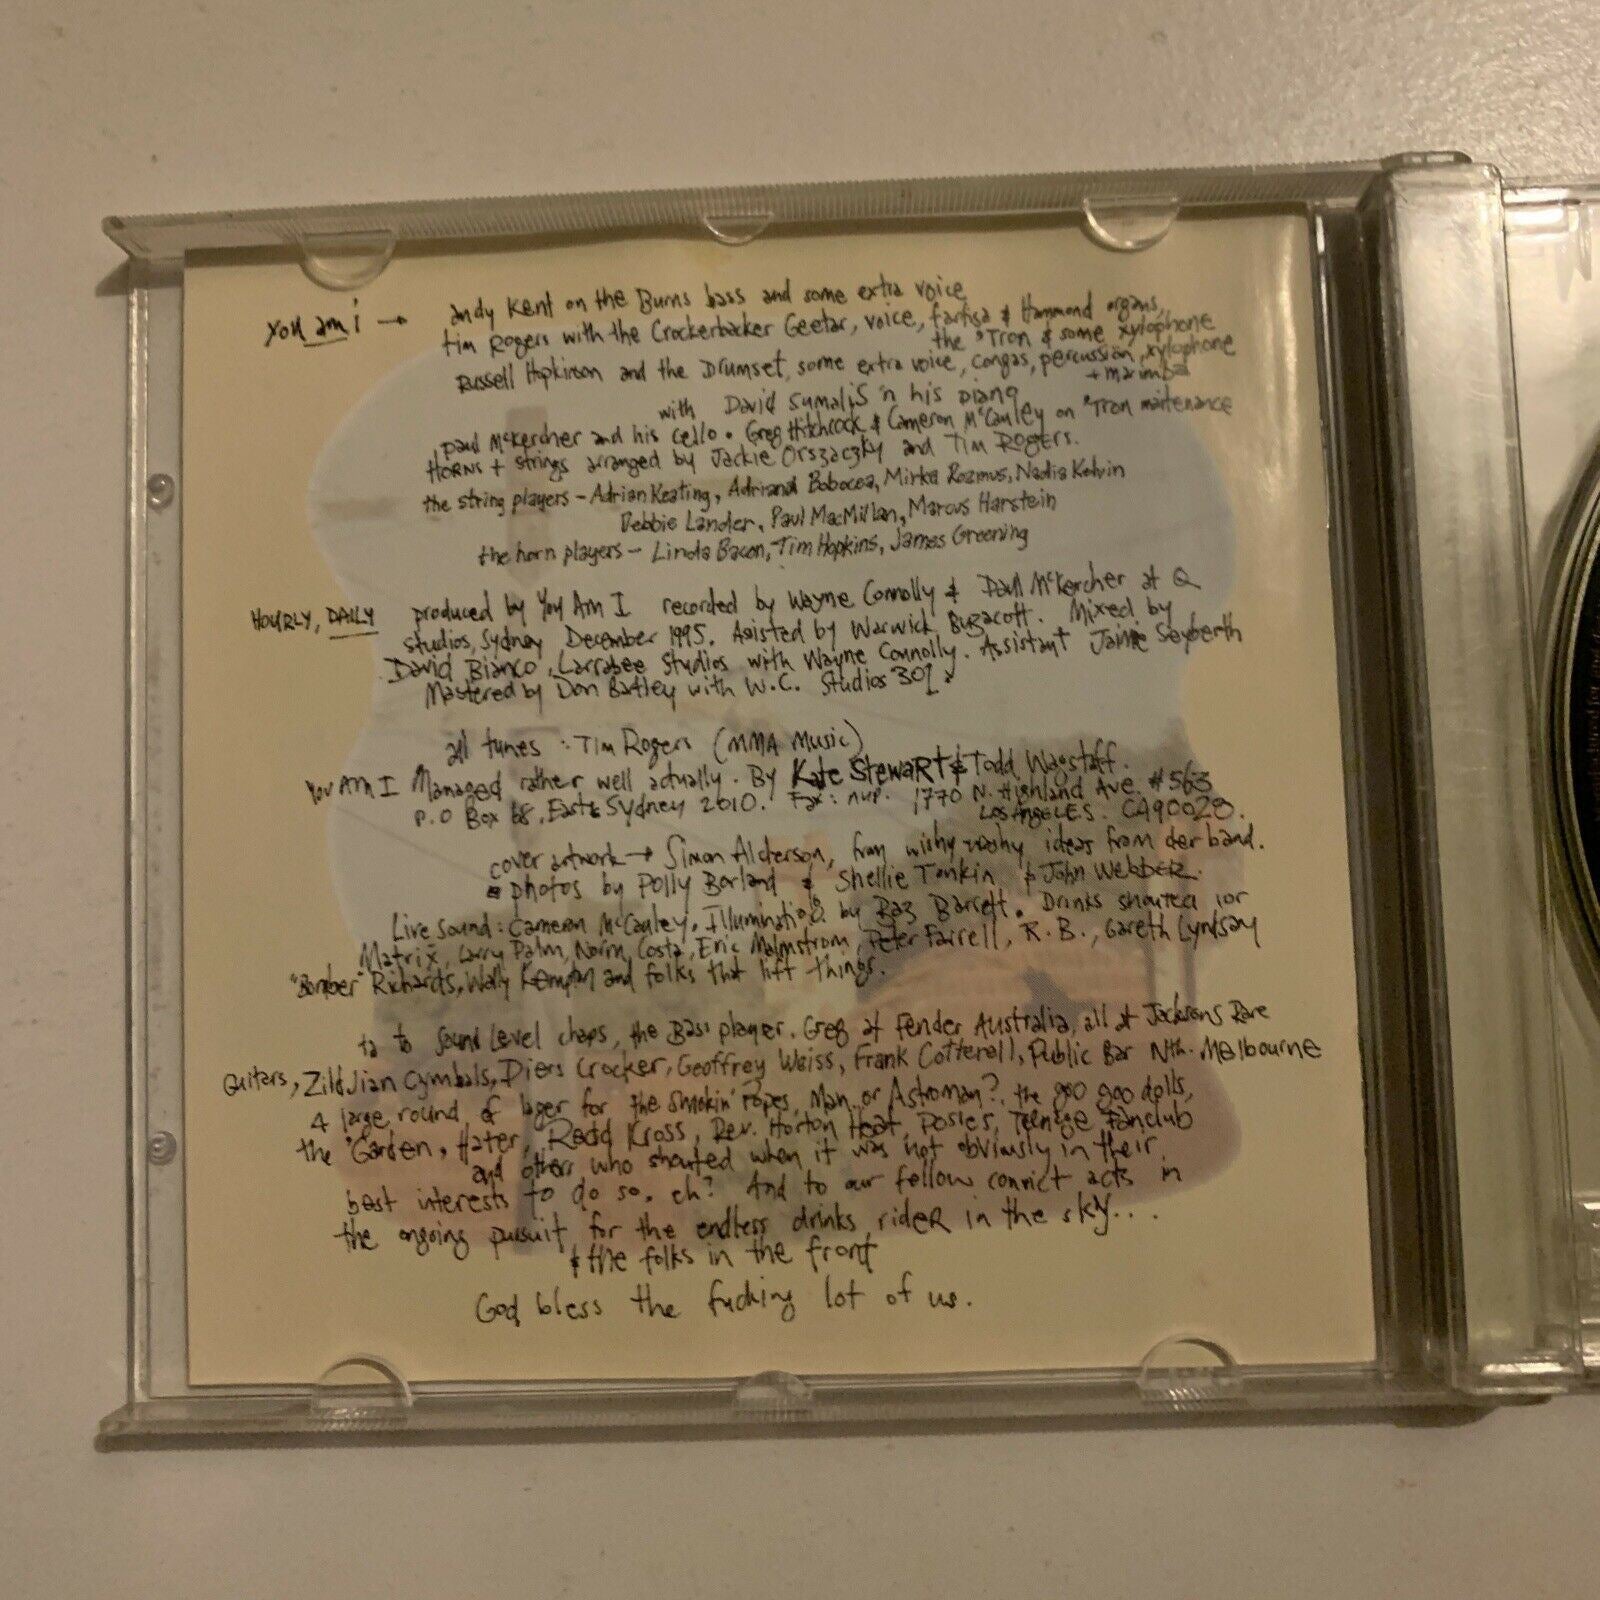 you am i → andy Kent on the Burns bass and some extra voice
tim Rogers with the Crockerbacker Geetar, voice, farfisa & Hammond organs,
the 'Tron & some xylophone
Russell Hopkinson and the Drumset, some extra voice, congas, percussion, xylophone
+ marimba
with David Sumalis 'n his piano
paul McKercher and his cello. Greg Hitchcock & Cameron McCauley on 'Tron maitenance
HORNS + strings arranged by Jackie Orszaczky and Tim Rogers.
the string players - Adrian Keating, Adriana Bobocea, Mirka Rozmus, Nadia Kelvin
Debbie Lander, Paul MacMillan, Marcus Harstein
the horn players - Linda Bacon, Tim Hopkins, James Greening
HOURLY, DAILY produced by You Am I recorded by Wayne Connolly & Paul McKercher at Q
studios, Sydney December 1995. Asisted by Warwick Buzacott. Mixed by
David Bianco, Larrabee Studios with Wayne Connolly. Assistant Jamie Seyberth
Mastered by Don Batley with W.C. Studios 301.
all tunes : Tim Rogers (MMA Music)
You AM I Managed rather well actually. By Kate Stewart & Todd Wagstaff.
P.O Box 68, East Sydney 2010. Fax: nup. 1770 N. Highland Ave. #563
Los Angeles. CA90028.
cover artwork → Simon Alderson, from wishy washy ideas from der band.
photos by Polly Borland & Shellie Tonkin & John Webber.
Live sound: Cameron McCauley. Illumination by Baz Barrett. Drinks shouted for
Matrix, Larry Palm, Norm Costa, Eric Malmstrom, Peter Farrell, R.B., Gareth Lyndsay
"Bomber" Richards, Wally Kempton and folks that lift things.
ta to Sound Level chaps, the Bass player. Greg at Fender Australia, all at Jacksons Rare
Guitars, Zildjian Cymbals, Piers Crocker, Geoffrey Weiss, Frank Cotterell, Public Bar Nth. Melbourne
A large round of lager for the Smokin' Popes, Man or Astroman?, the goo goo dolls,
the 'Garden, Hater, Redd Kross, Rev. Horton Heat, Posies, Teenage Fanclub
and others who shouted when it was not obviously in their
best interests to do so. eh? And to our fellow convict acts in
the ongoing pursuit for the endless drinks rider in the sky....
& the folks in the front
God bless the fucking lot of us.